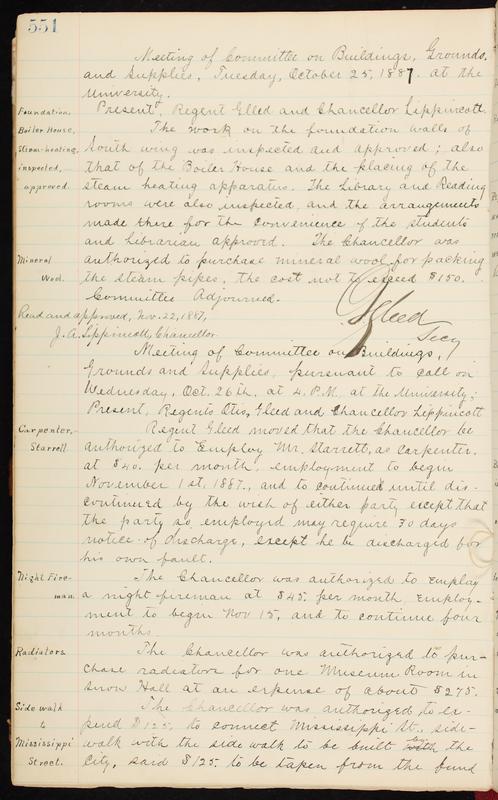 551
Meeting of Committee on Buildings, Grounds,
and Supplies, Tuesday, October 25, 1887. at the
University.
Present, Regent Gleed and Chancellor Lippincott.
Foundation,
Boiler House,
Steam-heating,
inspected,
approved.
The work on the foundation walls of
South wing was inspected and approved; also
that of the Boiler House and the placing of the
steam heating apparatus. The Library and Reading
rooms were also inspected, and the arrangements
made there for the convenience of the students
and Librarian approved. The Chancellor was
Mineral
Wool.
authorized to purchase mineral wool for packing
the steam pipes, the cost not to exceed $150.
Committee Adjourned.
Gleed
Secy
Read and approved, Nov. 22, 1887,
J. A. Lippincott, Chancellor.
Meeting of Committee on Buildings,
Grounds and Supplies, pursuant to call on
Wednesday, Oct. 26th. at 4. P.M. at the University;
Present, Regents Otis, Gleed and Chancellor Lippincott
Carpenter,
Starrett.
Regent Gleed moved that the Chancellor be
authorized to Employ Mr. Starrett, as carpenter.
at $40. per month, employment to begin
November 1st, 1887., and to continued until dis-
continued by the wish of either party except that
the party so employed may require 30 days
notice of discharge, except he be discharged for
his own fault.
Night Fire-
man.
The Chancellor was authorized to employ
a night-fireman at $45. per month, employ-
ment to begin Nov 15, and to continue four
months.
Radiators.
The Chancellor was authorized to pur-
chase radiators for one Museum Room in
Snow Hall at an expense of about $275.
Side walk
to
Mississippi
Street.
The Chancellor was authorized to ex-
pend $125, to connect Mississippi St., side-
walk with the side walk to be built with by the
City, said $125. to be taken from the fund